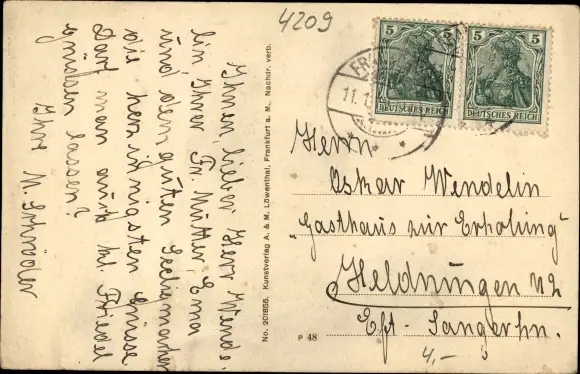 4209
5 5
5 5
DEUTSCHES REICH
DEUTSCHES REICH
FR
11.1
Ihnen, lieber Herr Wende-
lin, Ihrer Fr. Mutter, Ema
und dem guten
die herzinnigsten Grüsse
Darf man auch kl. Friedel
grüßen lassen?
Ihre M. Schröder
No. 201855. Kunstverlag A. & M. Löwenthal, Frankfurt a. M. Nachdr. verb.
P 48
Herrn
Oskar Wendelin
„Gasthaus zur Erholung"
Heldrungen
Sangerhn.
4,–